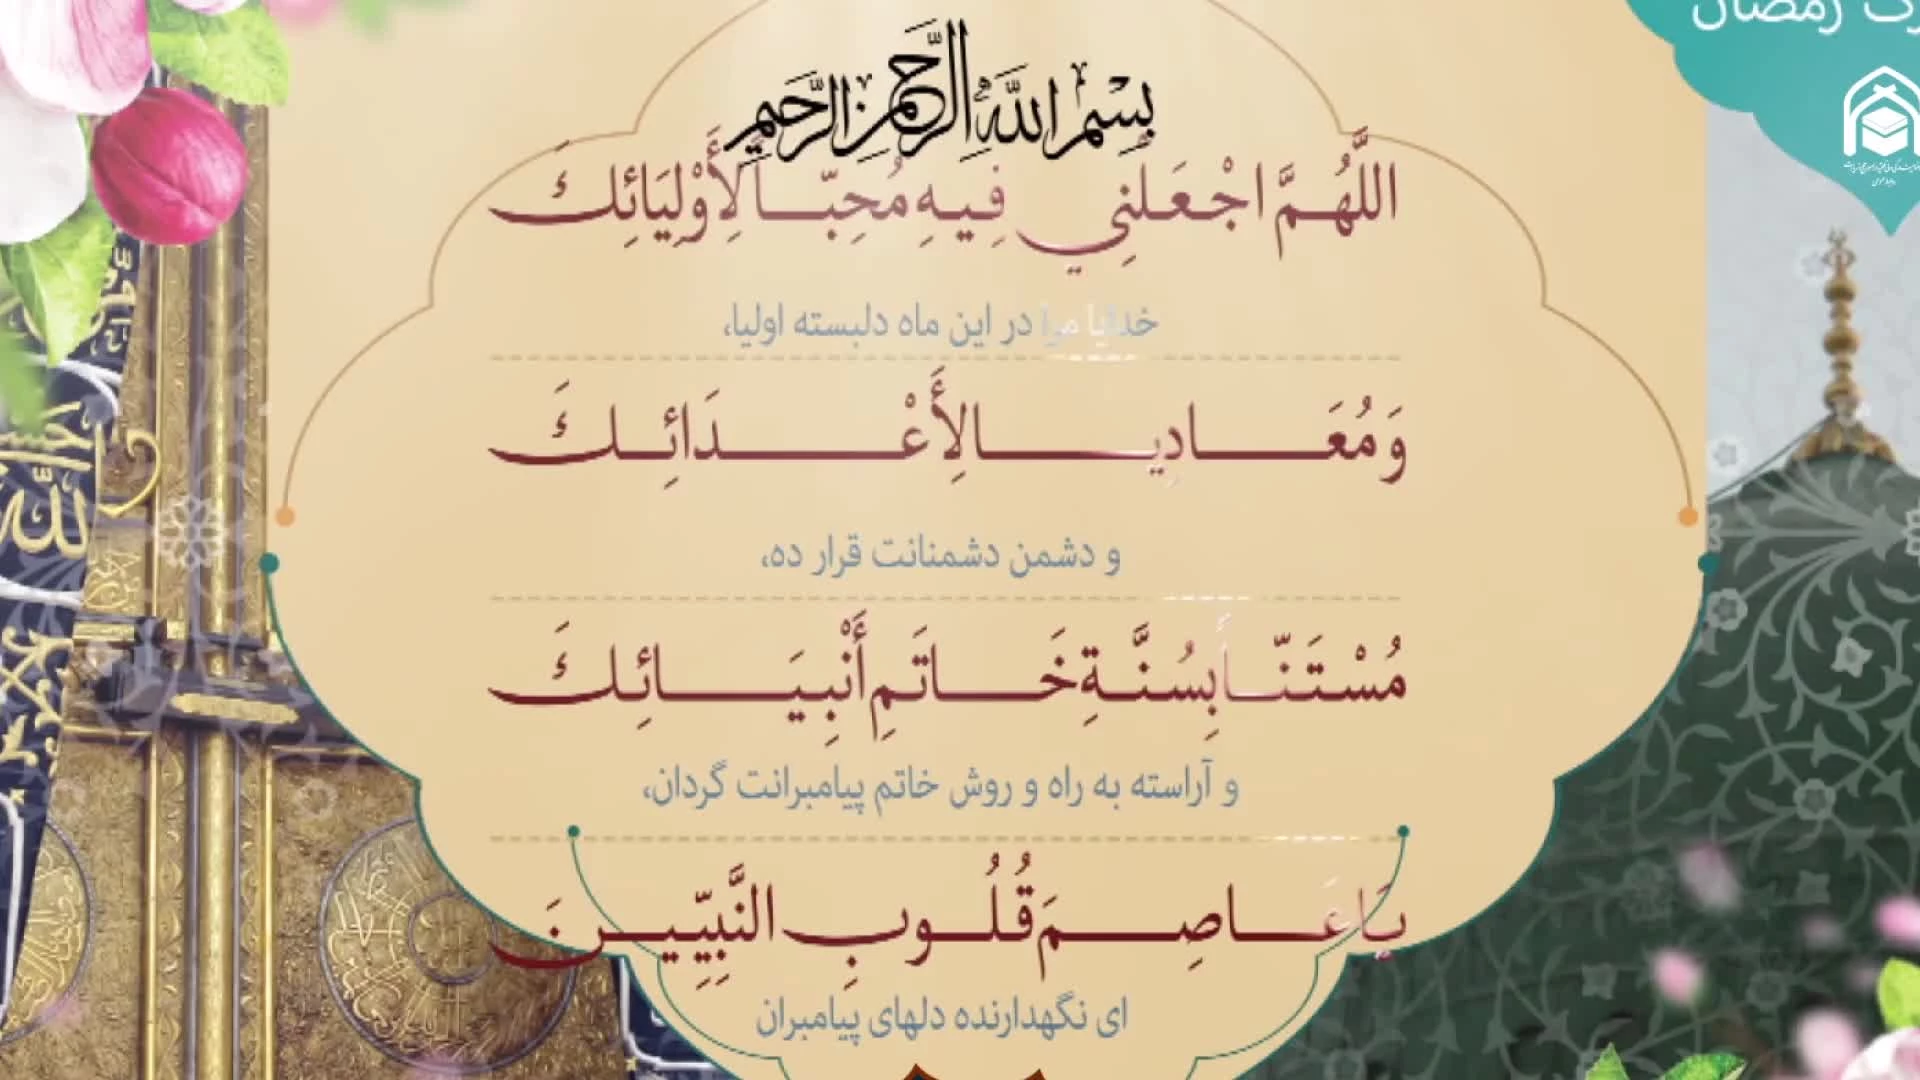 رمضان
بِسْمِ اللَّهِ الرَّحْمَنِ الرَّحِيمِ
اللَّهُمَّ اجْعَلْنِي فِيهِ مُحِبّاً لِأَوْلِيَائِكَ
خدایا مرا در این ماه دلبسته اولیا،
وَ مُعَادِياً لِأَعْدَائِكَ
و دشمن دشمنانت قرار ده،
مُسْتَنّاً بِسُنَّةِ خَاتَمِ أَنْبِيَائِكَ
و آراسته به راه و روش خاتم پیامبرانت گردان،
يَا عَاصِمَ قُلُوبِ النَّبِيِّينَ
ای نگهدارنده دلهای پیامبران